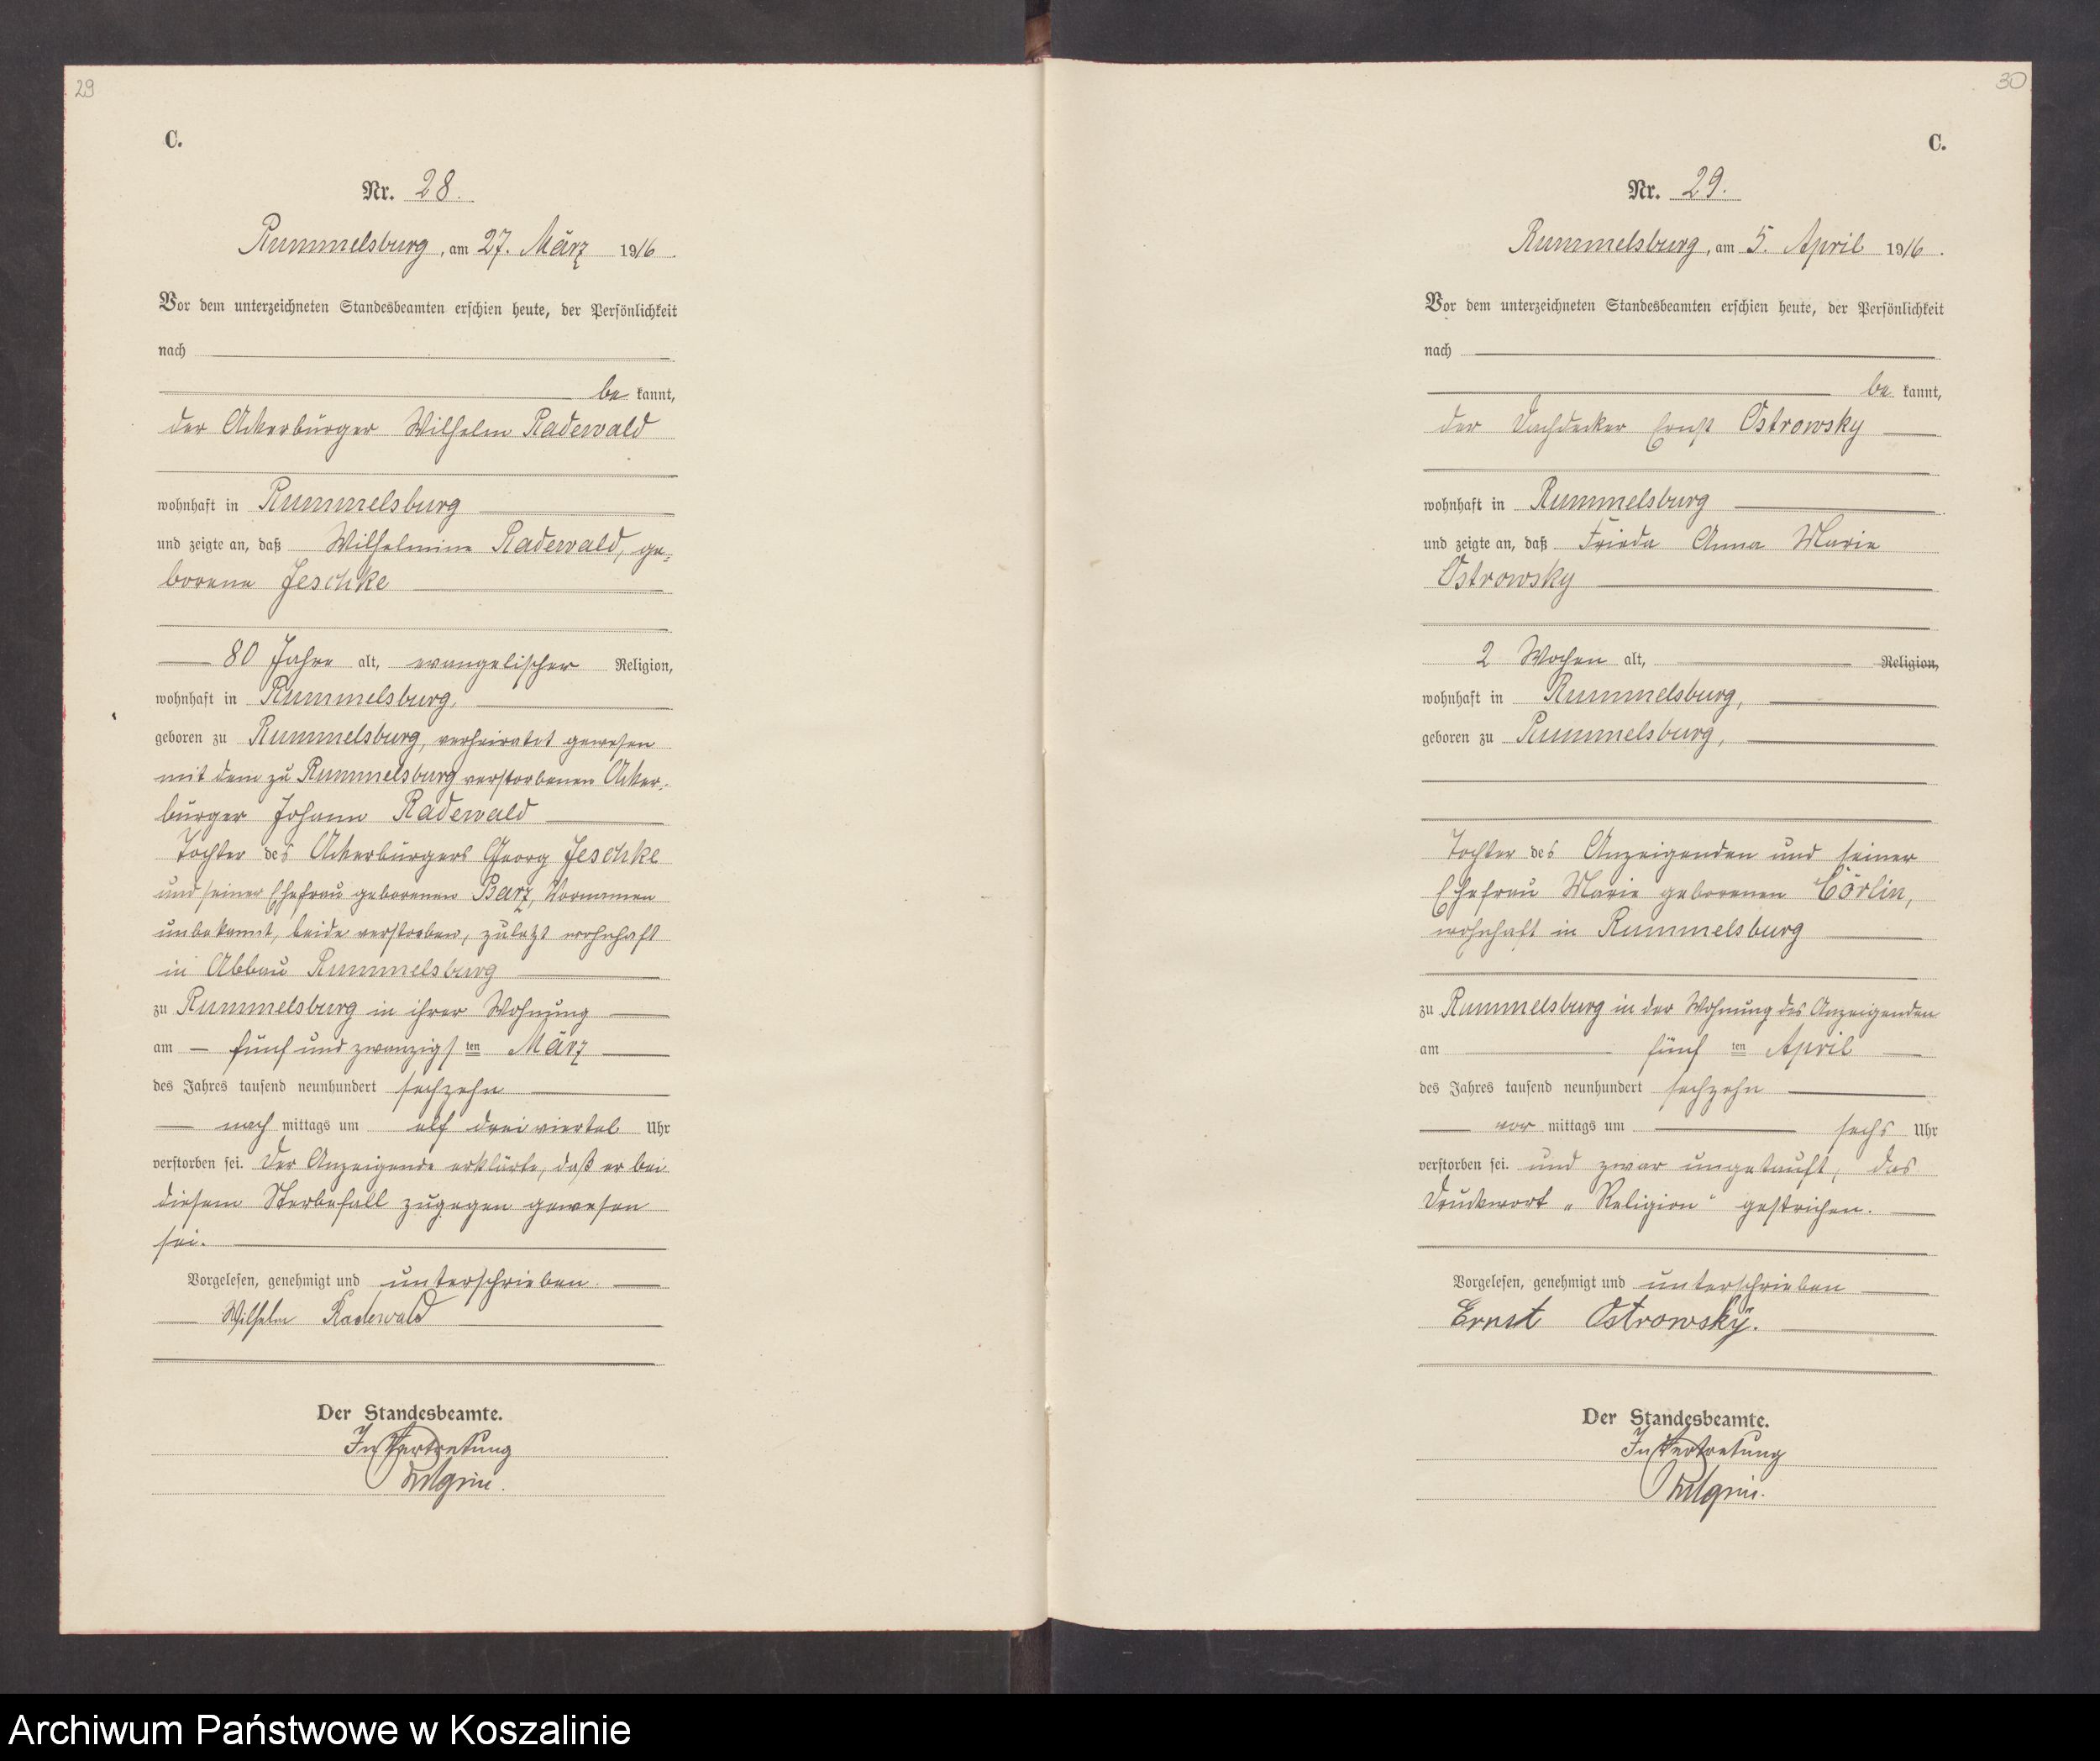 29
C.
Nr. 28.
Rummelsburg, am 27. März 1916.
Vor dem unterzeichneten Standesbeamten erschien heute, der Persönlichkeit
nach
be kannt,
der Ackerbürger Wilhelm Radewald
wohnhaft in Rummelsburg
und zeigte an, daß Wilhelmine Radewald, ge=
borene Jeschke
80 Jahre alt, evangelischer Religion,
wohnhaft in Rummelsburg,
geboren zu Rummelsburg, verheiratet gewesen
mit dem zu Rummelsburg verstorbenen Acker=
bürger Johann Radewald
Tochter des Ackerbürgers Georg Jeschke
und seiner Ehefrau geborenen Barz, Vornamen
unbekannt, beide verstorben, zuletzt wohnhaft
in Abbau Rummelsburg
zu Rummelsburg in ihrer Wohnung
am fünf und zwanzigsten März
des Jahres tausend neunhundert sechzehn
nach mittags um elf dreiviertel Uhr
verstorben sei. Der Anzeigende erklärte, daß er bei
diesem Sterbefall zugegen gewesen
sei.
Vorgelesen, genehmigt und unterschrieben.
Wilhelm Radewald
Der Standesbeamte.
In Vertretung
30
C.
Nr. 29.
Rummelsburg, am 5. April 1916.
Vor dem unterzeichneten Standesbeamten erschien heute, der Persönlichkeit
nach
be kannt,
der Dachdecker Ernst Ostrowsky
wohnhaft in Rummelsburg
und zeigte an, daß Frieda Anna Marie
Ostrowsky
2 Wochen alt, Religion,
wohnhaft in Rummelsburg,
geboren zu Rummelsburg,
Tochter des Anzeigenden und seiner
Ehefrau Marie geborenen Cörlin,
wohnhaft in Rummelsburg
zu Rummelsburg in der Wohnung des Anzeigenden
am fünf ten April
des Jahres tausend neunhundert sechzehn
vor mittags um sechs Uhr
verstorben sei. und zwar ungetauft, das
Druckwort „Religion" gestrichen.
Vorgelesen, genehmigt und unterschrieben
Ernst Ostrowsky.
Der Standesbeamte.
In Vertretung
Archiwum Państwowe w Koszalinie